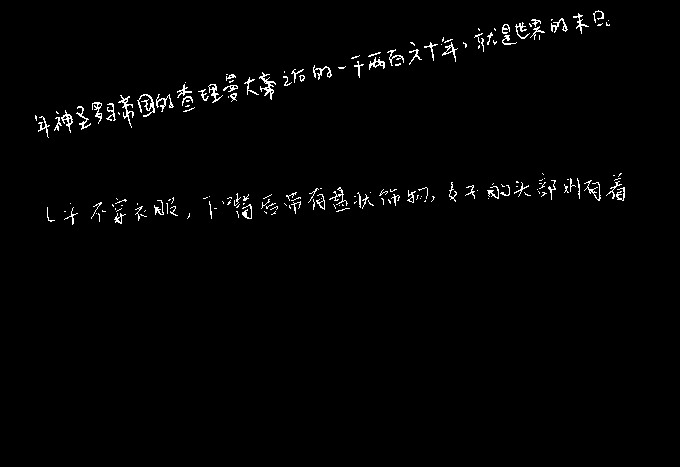 年神圣罗马帝国的查理曼大帝之后的一千两百六十年，就是世界的末日。
乎不穿衣服，下嘴唇带有盘状饰物，女子的头部则有着